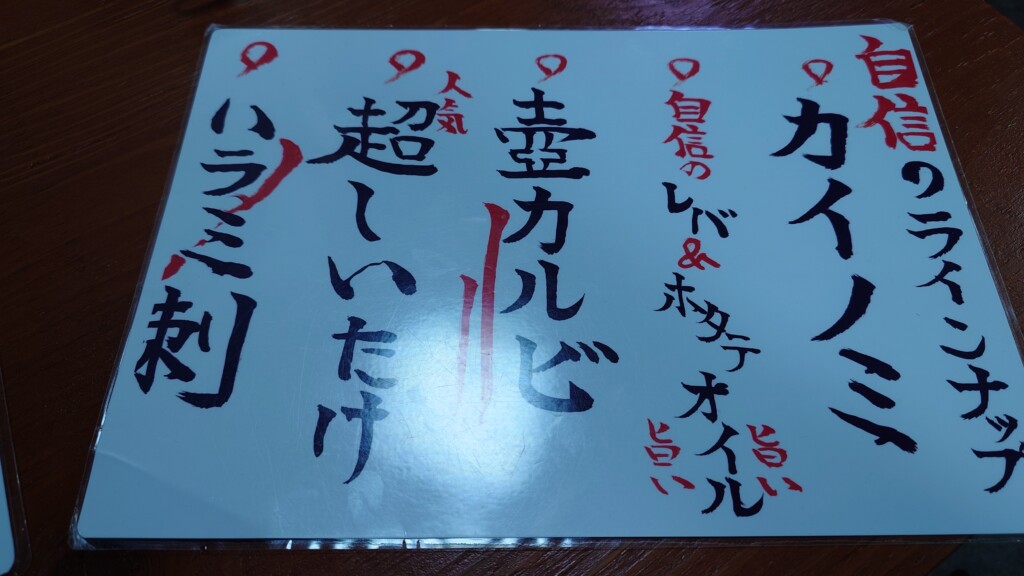 自信のラインナップ
カイノミ
自信の
レバ&ホタテオイル
旨い
旨い
壺カルビ
人気
超しいたけ
ハラミ刺